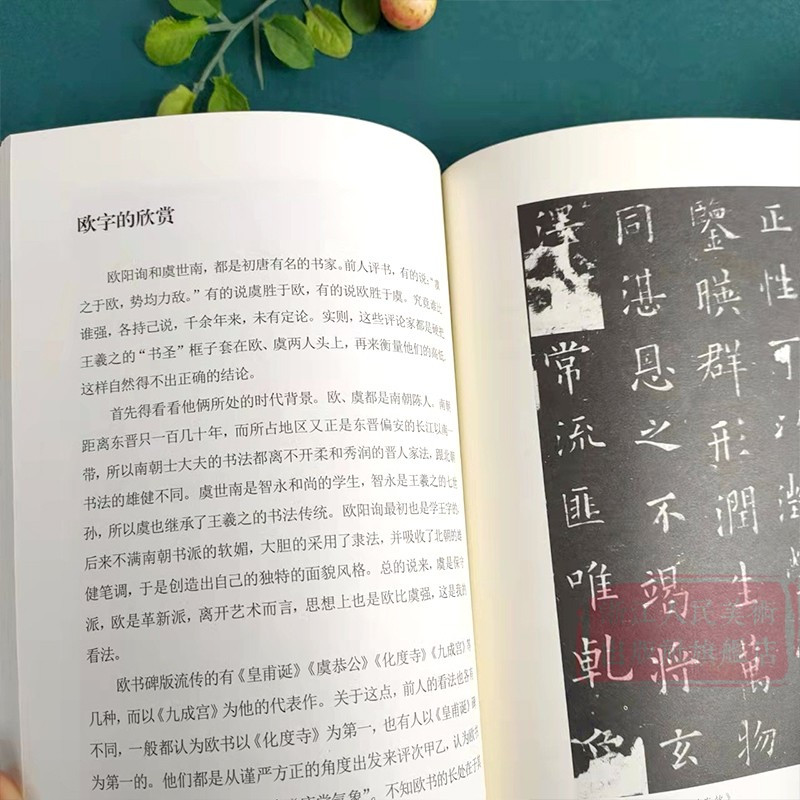 欧字的欣赏
欧阳询和虞世南，都是初唐有名的书家。前人评书，有的说：“虞
之于欧，势均力敌。”有的说虞胜于欧，有的说欧胜于虞。究竟谁比
谁强，各持己说，千余年来，未有定论。实则，这些评论家都是硬把
王羲之的“书圣”框子套在欧、虞两人头上，再来衡量他们的高低，
这样自然得不出正确的结论。
首先得看看他俩所处的时代背景。欧、虞都是南朝陈人、南朝
距离东晋只一百几十年，而所占地区又正是东晋偏安的长江以南一
带，所以南朝士大夫的书法都离不开柔和秀润的晋人家法，跟北朝
书法的雄健不同。虞世南是智永和尚的学生，智永是王羲之的七世
孙，所以虞也继承了王羲之的书法传统。欧阳询最初也是学王字的，
后来不满南朝书派的软媚，大胆的采用了隶法，并吸收了北朝的雄
健笔调，于是创造出自己的独特的面貌风格。总的说来，虞是保守
派，欧是革新派，离开艺术而言，思想上也是欧比虞强，这是我的
看法。
欧书碑版流传的有《皇甫诞》《虞恭公》《化度寺》《九成宫》等
几种，而以《九成宫》为他的代表作。关于这点，前人的看法也各有
不同，一般都认为欧书以《化度寺》为第一，也有人以《皇甫诞》
为第一的。他们都是从谨严方正的角度出发来评次甲乙，认为欧
气象”。不知欧书的长处在于
正性可
鑒暎群形潤生萬物
同湛恩之不竭將玄
澤常流匪唯乹